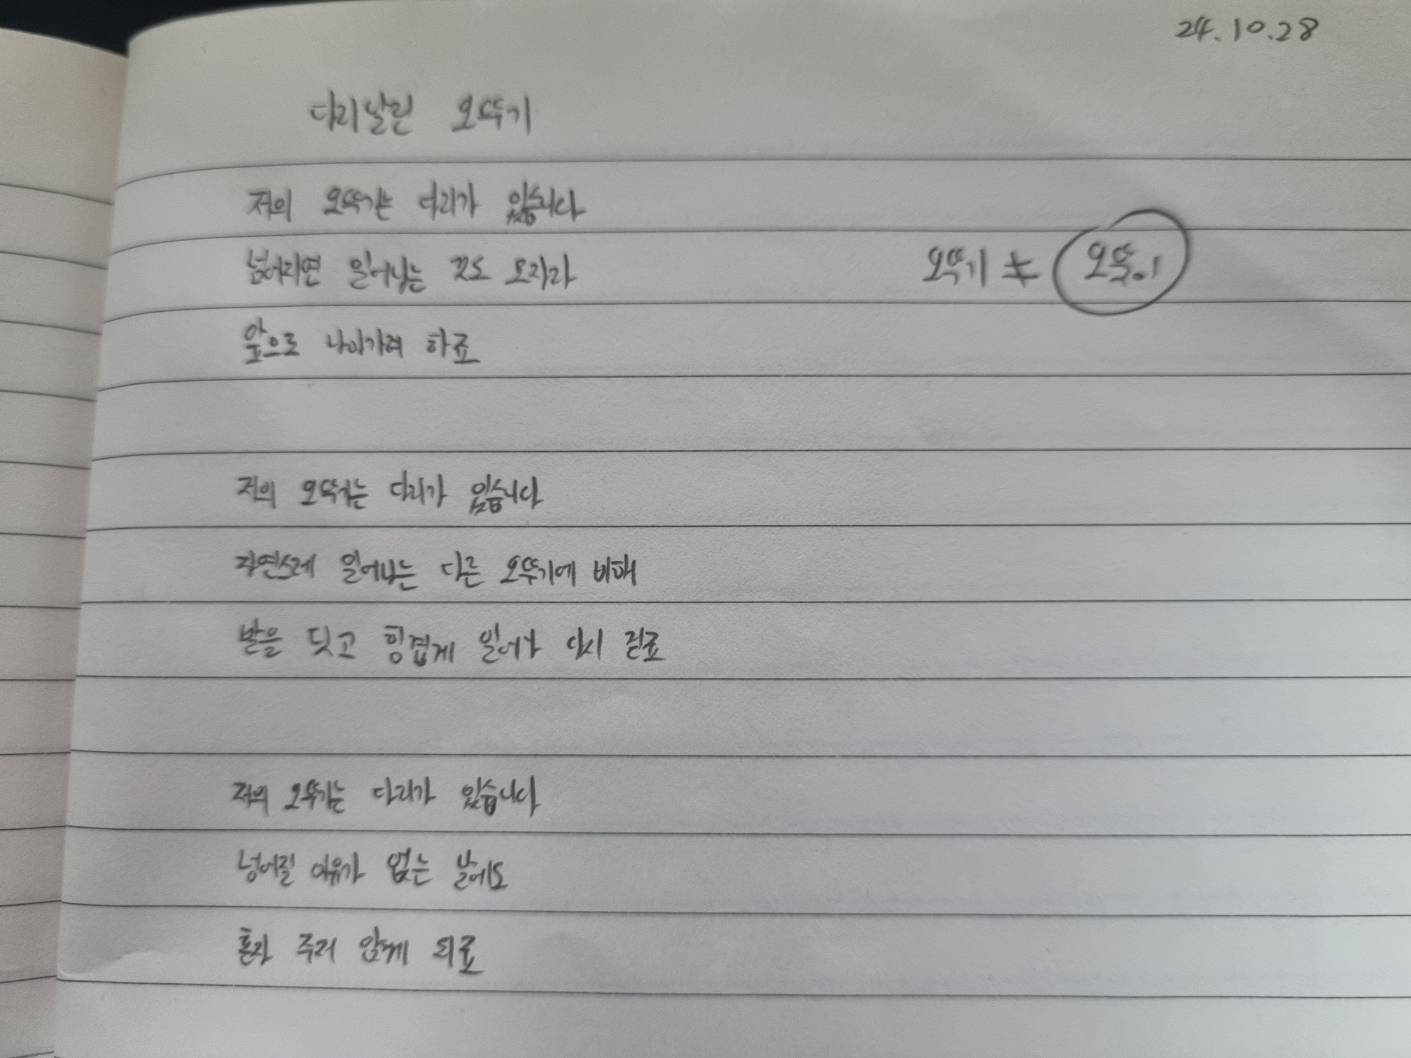 24.10.28
다리달린 오뚜기
저의 오뚜기는 다리가 있습니다
넘어지면 일어나는 것도 모자라
오뚜기 ≠ 오뚝이
앞으로 나아가려 하죠
저의 오뚜기는 다리가 있습니다
자연스레 일어나는 다른 오뚜기에 비해
발을 딛고 힘겹게 일어나 다시 걷죠
저의 오뚜기는 다리가 있습니다
넘어질 이유가 없는 날에도
혼자 주저 앉게 되죠